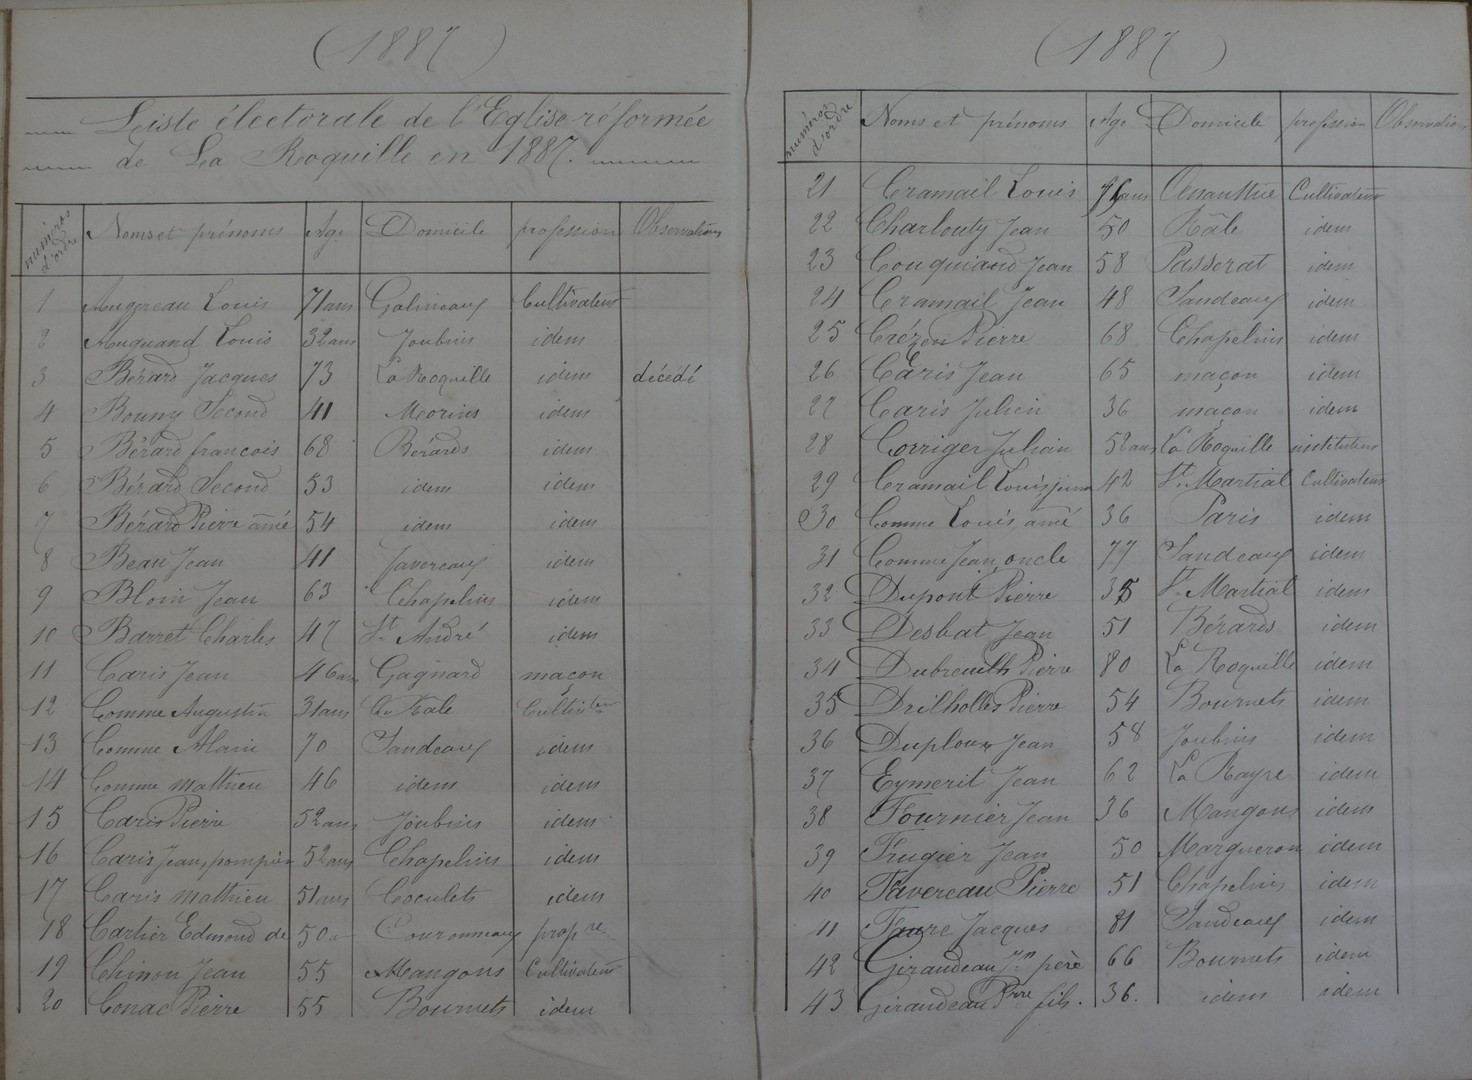 (1887)
Liste électorale de l'Eglise réformée
de La Roquille en 1887.
numéros d'ordre Noms et prénoms Age Domicile profession Observations
1 Augereau Louis 71 ans Galineaux Cultivateur
2 Auguand Louis 32 ans Joubins idem
3 Bérard Jacques 73 La Roquille idem décédé
4 Bouny Second 41 Morins idem
5 Bérard francois 68 Bérards idem
6 Bérard Second 53 idem idem
7 Bérard Pierre ainé 54 idem idem
8 Beau Jean 41 Favereaux idem
9 Bloin Jean 63 Chapelins idem
10 Barret Charles 47 St André idem
11 Caris Jean 46 ans Gagnard maçon
12 Comme Augustin 31 ans Kale Cultivteur
13 Comme Alain 70 Sandeaux idem
14 Comme mathieu 46 idem idem
15 Caris Pierre 52 ans Joubins idem
16 Caris Jean, pompier 52 ans Chapelins idem
17 Caris mathieu 51 ans Coculets idem
18 Cartier Edmond de 50 a Couronneaux propre
19 Chinou Jean 55 Mangons Cultivateur
20 Conac Pierre 55 Bournets idem
(1887)
numéros d'ordre Noms et prénoms Age Domicile profession Observation
21 Cramail Louis ans Cultivateur
22 Charlouty Jean 50 Kâle idem
23 Couquiaud Jean 58 Passerat idem
24 Cramail Jean 48 Sandeaux idem
25 Crézen Pierre 68 Chapelins idem
26 Caris Jean 65 maçon idem
27 Caris Julien 36 maçon idem
28 Corriger Julien 52 ans La Roquille instituteur
29 Cramail Louis jeune 42 St Martial Cultivateur
30 Comme Louis, ainé 36 Paris idem
31 Comme Jean, oncle 77 Sandeaux idem
32 Dupont Pierre 35 St Martial idem
33 Desbat Jean 51 Bérards idem
34 Dubreuilh Pierre 80 La Roquille idem
35 Drilholles Pierre 54 Bournets idem
36 Duploux Jean 58 Joubins idem
37 Eymerit Jean 62 La Rayre idem
38 Fournier Jean 36 Mangons idem
39 Frugier Jean 50 Margueron idem
40 Favereau Pierre 51 Chapelins idem
41 Faure Jacques 81 Sandeaux idem
42 Giraudeau Jn père 66 Bournets idem
43 Giraudeau Prre fils. 36. idem idem